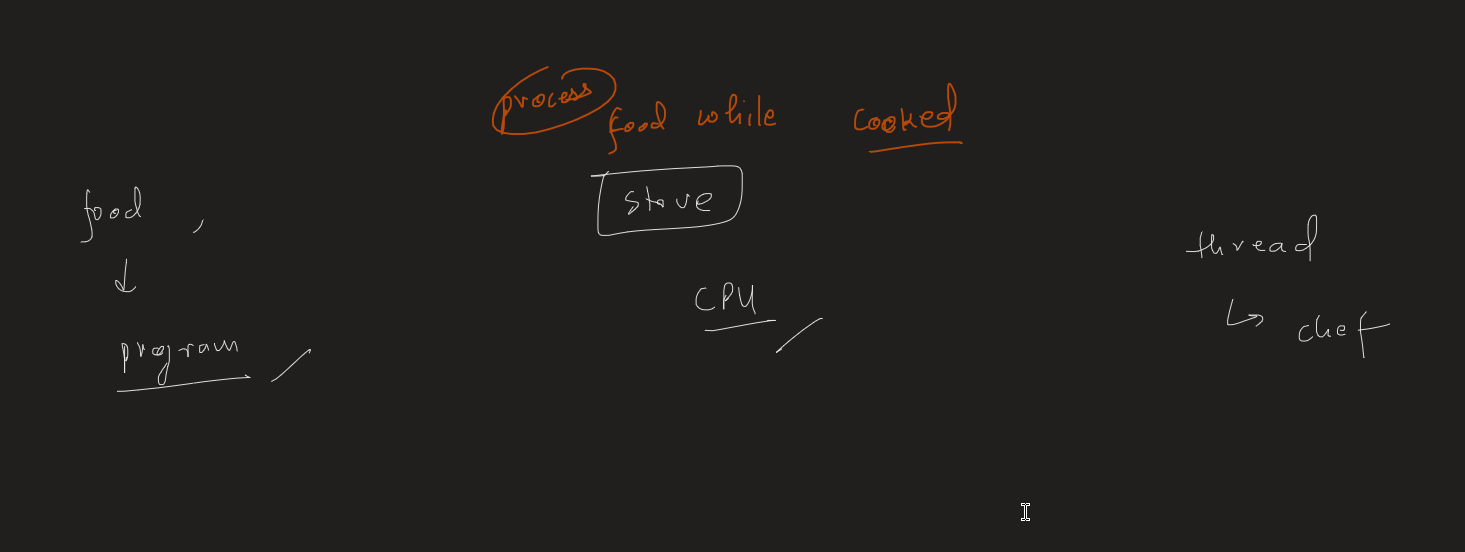 process
food while cooked
stove
food ,
↓
program
CPU
thread
↳ chef